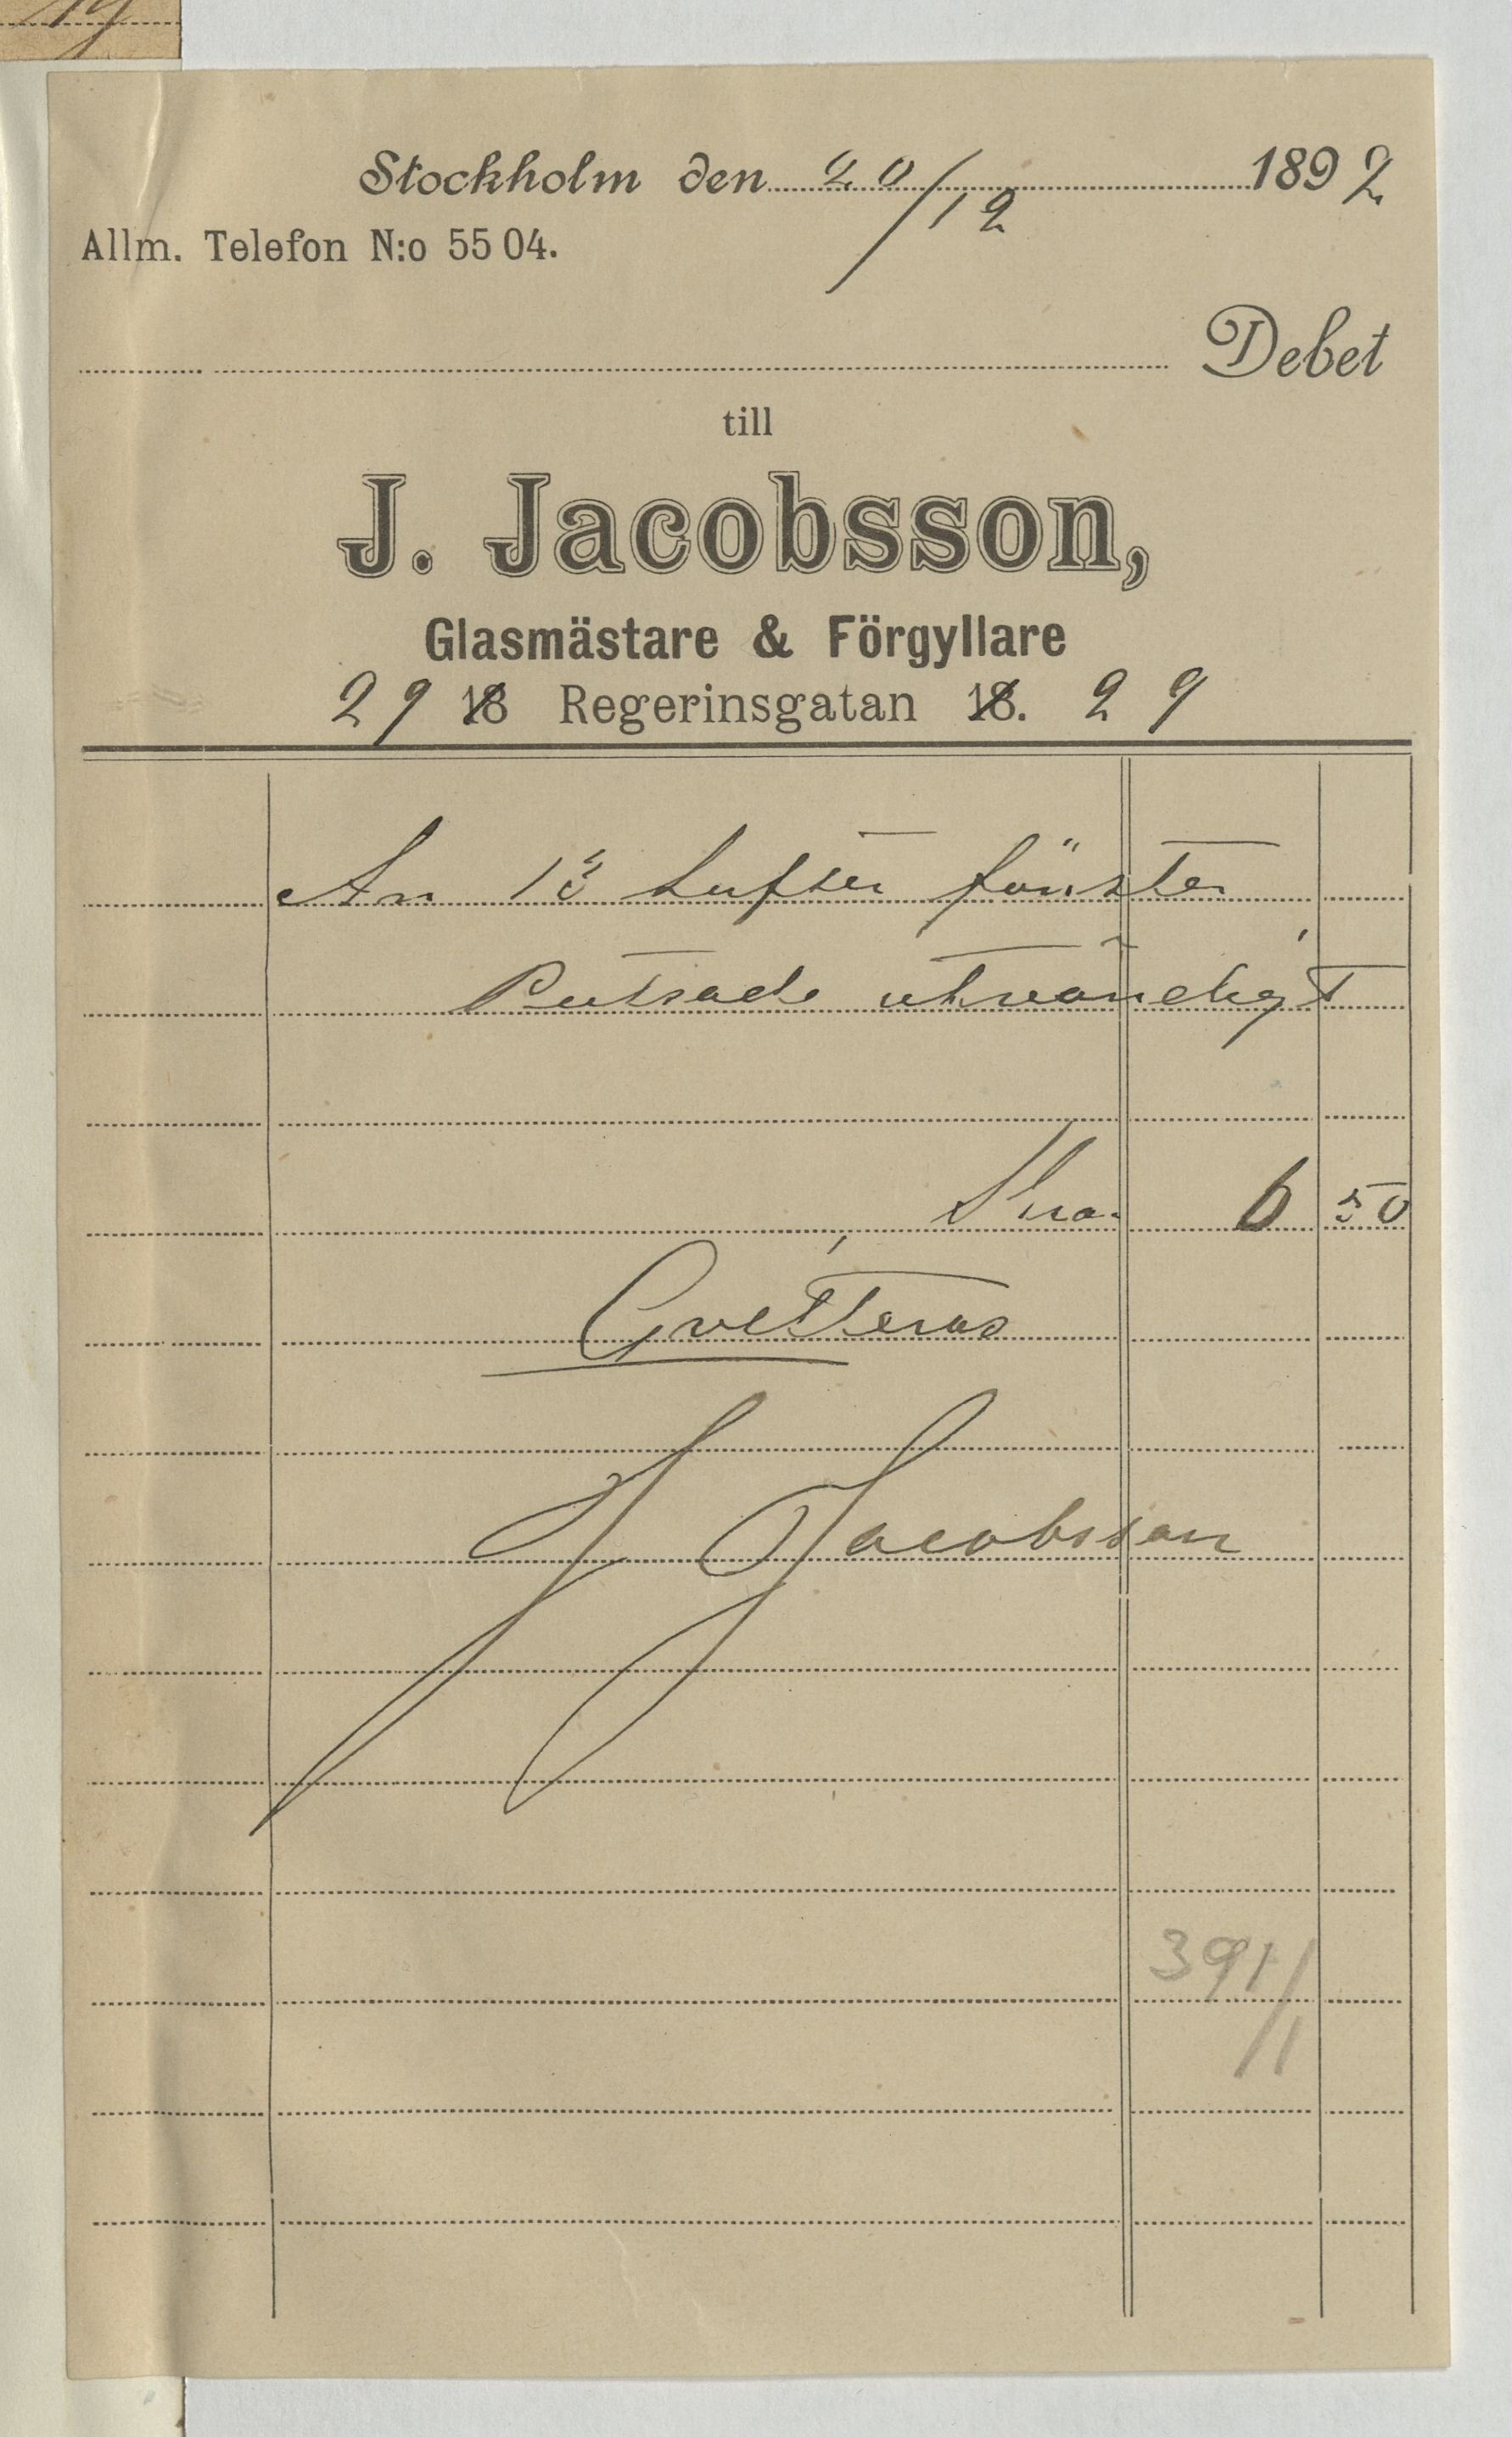 19
Stockholm den 20/12 1892
Allm. Telefon N:o 55 04.
Debet
till
J. Jacobsson,
Glasmästare & Förgyllare
29 18 Regerinsgatan 18. 29
An 13 Lufter fönster
Putsade utvändigt
Kro. 6 50
Qvitteras
J Jacobsson
391/1